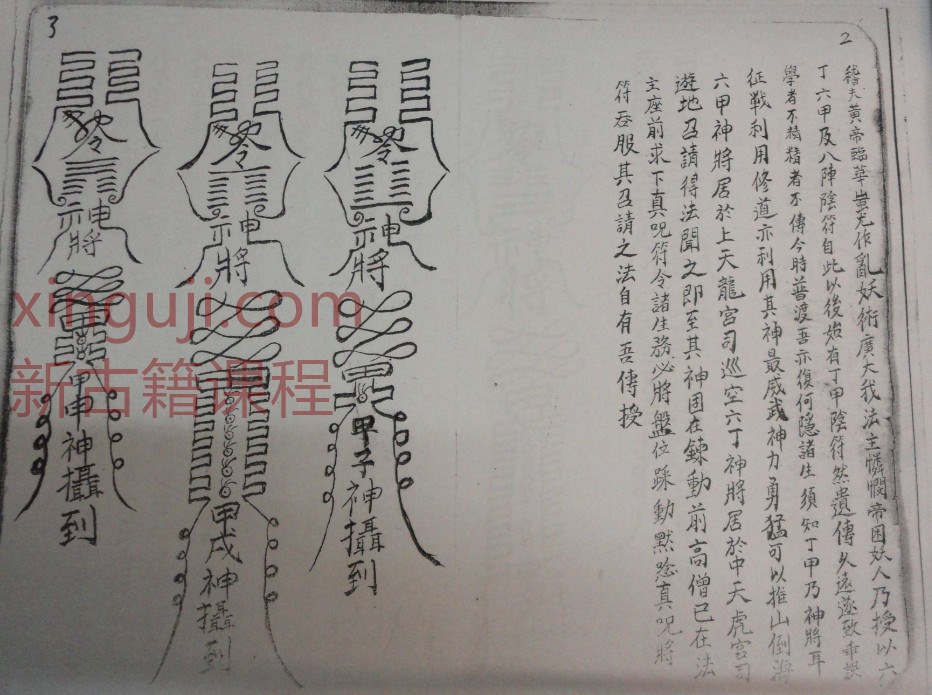 2
稽夫黃帝臨華蚩尤作亂妖術廣大我法主憐憫帝困妖人乃授以六
丁六甲及八陣陰符自此以後始有丁甲陰符然遺傳久遠遂致乖誤
學者不精精者不傳今時普渡吾亦復何隱諸生須知丁甲乃神將耳
征戰利用修道亦利用其神最威武神力勇猛可以推山倒海
六甲神將居於上天龍宮司巡空六丁神將居於中天虎宮司
遊地召請得法聞之即至其神固在鍊動前高僧已在法
主座前求下真咒符令諸生務必將盤位踩動默唸真咒將
符吞服其召請之法自有吾傳授
3
神將
甲子神攝到
神將
甲戌神攝到
神將
甲申神攝到
xinguji.com
新古籍课程